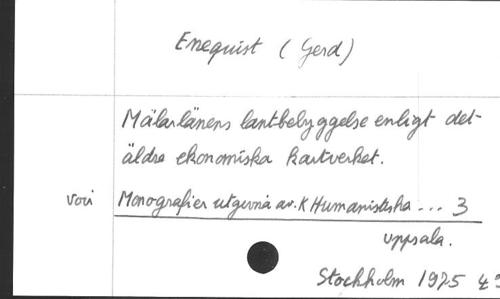 Enequist (Gerd)
Mälarlänens lantbebyggelse enligt det
äldre ekonomiska kartverket.
voir Monografier utgivna av. K Humanistiska ... 3
uppsala.
Stockholm 1975